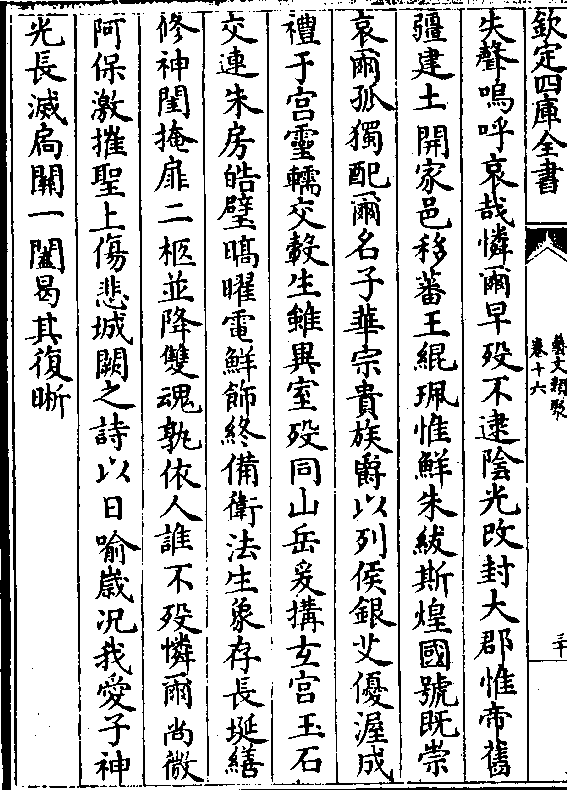 欽定四庫全書
藝文類聚
卷十六
二十
失聲嗚呼哀哉憐爾早殁不逮陰光改封大郡惟帝舊
疆建土開家邑移蕃王緄珮惟鮮朱紱斯煌國號既崇
哀爾孤獨配爾名子華宗貴族爵以列侯銀艾優渥成
禮于宫靈轜交轂生雖異室殁同山岳爰搆玄宫玉石
交連朱房皓壁暠曜電鮮飾終備衛法生象存長埏繕
修神閨掩扉二柩並降雙魂孰依人誰不殁憐爾尚微
阿保激摧聖上傷悲城闕之詩以日喻歳况我愛子神
光長滅扃闗一闔曷其復晰